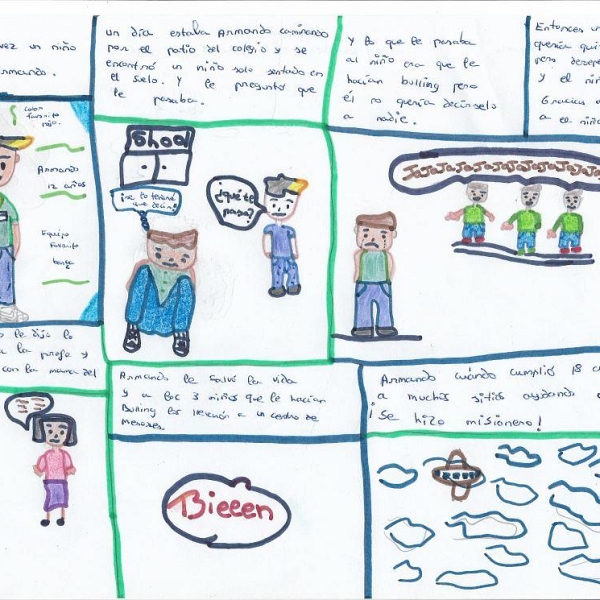 vez un niño
Armando.
Color
favorito
rojo.
Armando
12 años
Equipo
Favorito
un día estaba Armando caminando
por el patio del colegio y se
encontró un niño solo sentado en
el suelo. Y le preguntó que
le pasaba.
Shool
¿se lo tendré
que decir?
¿qué te
pasa?
Y lo que le pasaba
al niño era que le
hacían bulling pero
él no quería decírselo
a nadie.
JaJaJaJaJaJaJaJaJaJaJaJaJa
Entonces un
quería quit
pero
y el niñ
Gracias a
a el niño
le dijo lo
a la profe y
con la mama del
Armando le salvó la vida
y a los 3 niños que le hacían
Bulling los llevaron a un centro de
menores.
Bieeen
Armando cuándo cumplió 18
a muchos sitios ayudando a
¡Se hizo misionero!